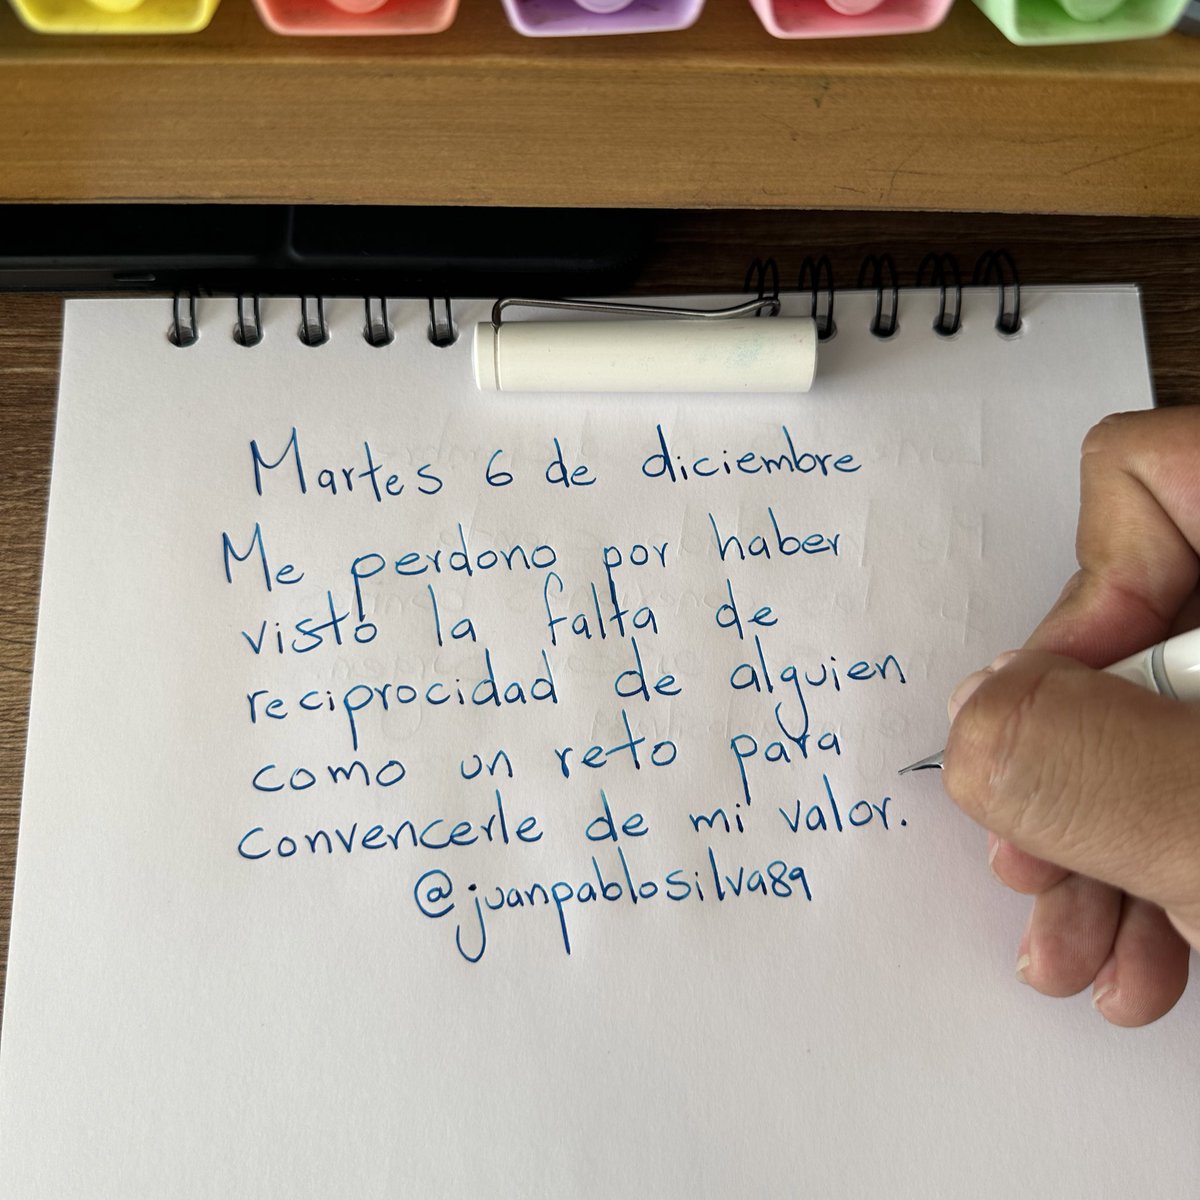 Martes 6 de diciembre
Me perdono por haber
visto la falta de
reciprocidad de alguien
como un reto para
convencerle de mi valor.
@juanpablosilva89